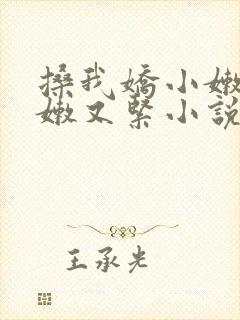 搡我嬌小嫩
嫩又緊小說
王承光